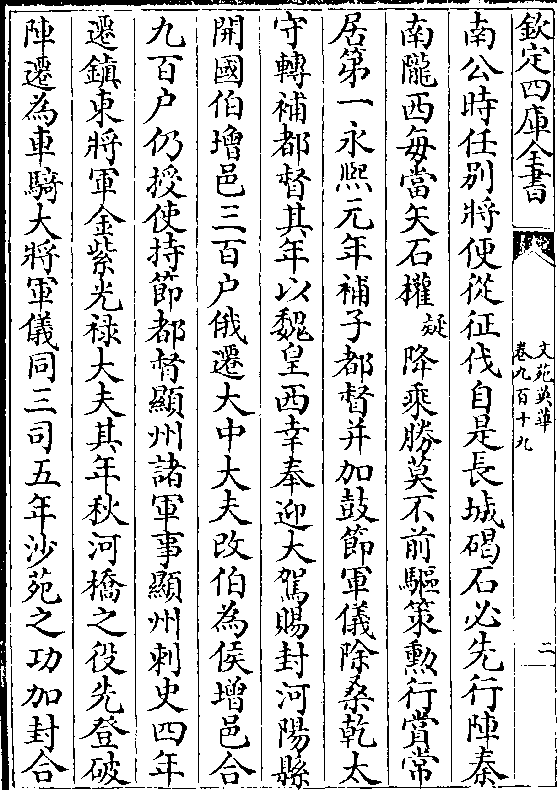 欽定四庫全書
文苑英華
卷九百十九
二
南公時任别將便從征伐自是長城碣石必先行陣秦
南隴西每當矢石攉疑降乘勝莫不前驅策勲行賞常
居第一永熈元年補子都督并加鼓節軍儀除桑乾太
守轉補都督其年以魏皇西幸奉迎大駕賜封河陽縣
開國伯增邑三百户俄遷大中大夫改伯為侯增邑合
九百户仍授使持節都督顯州諸軍事顯州刺史四年
遷鎮東將軍金紫光禄大夫其年秋河橋之役先登破
陣遷為車騎大將軍儀同三司五年沙苑之功加封合